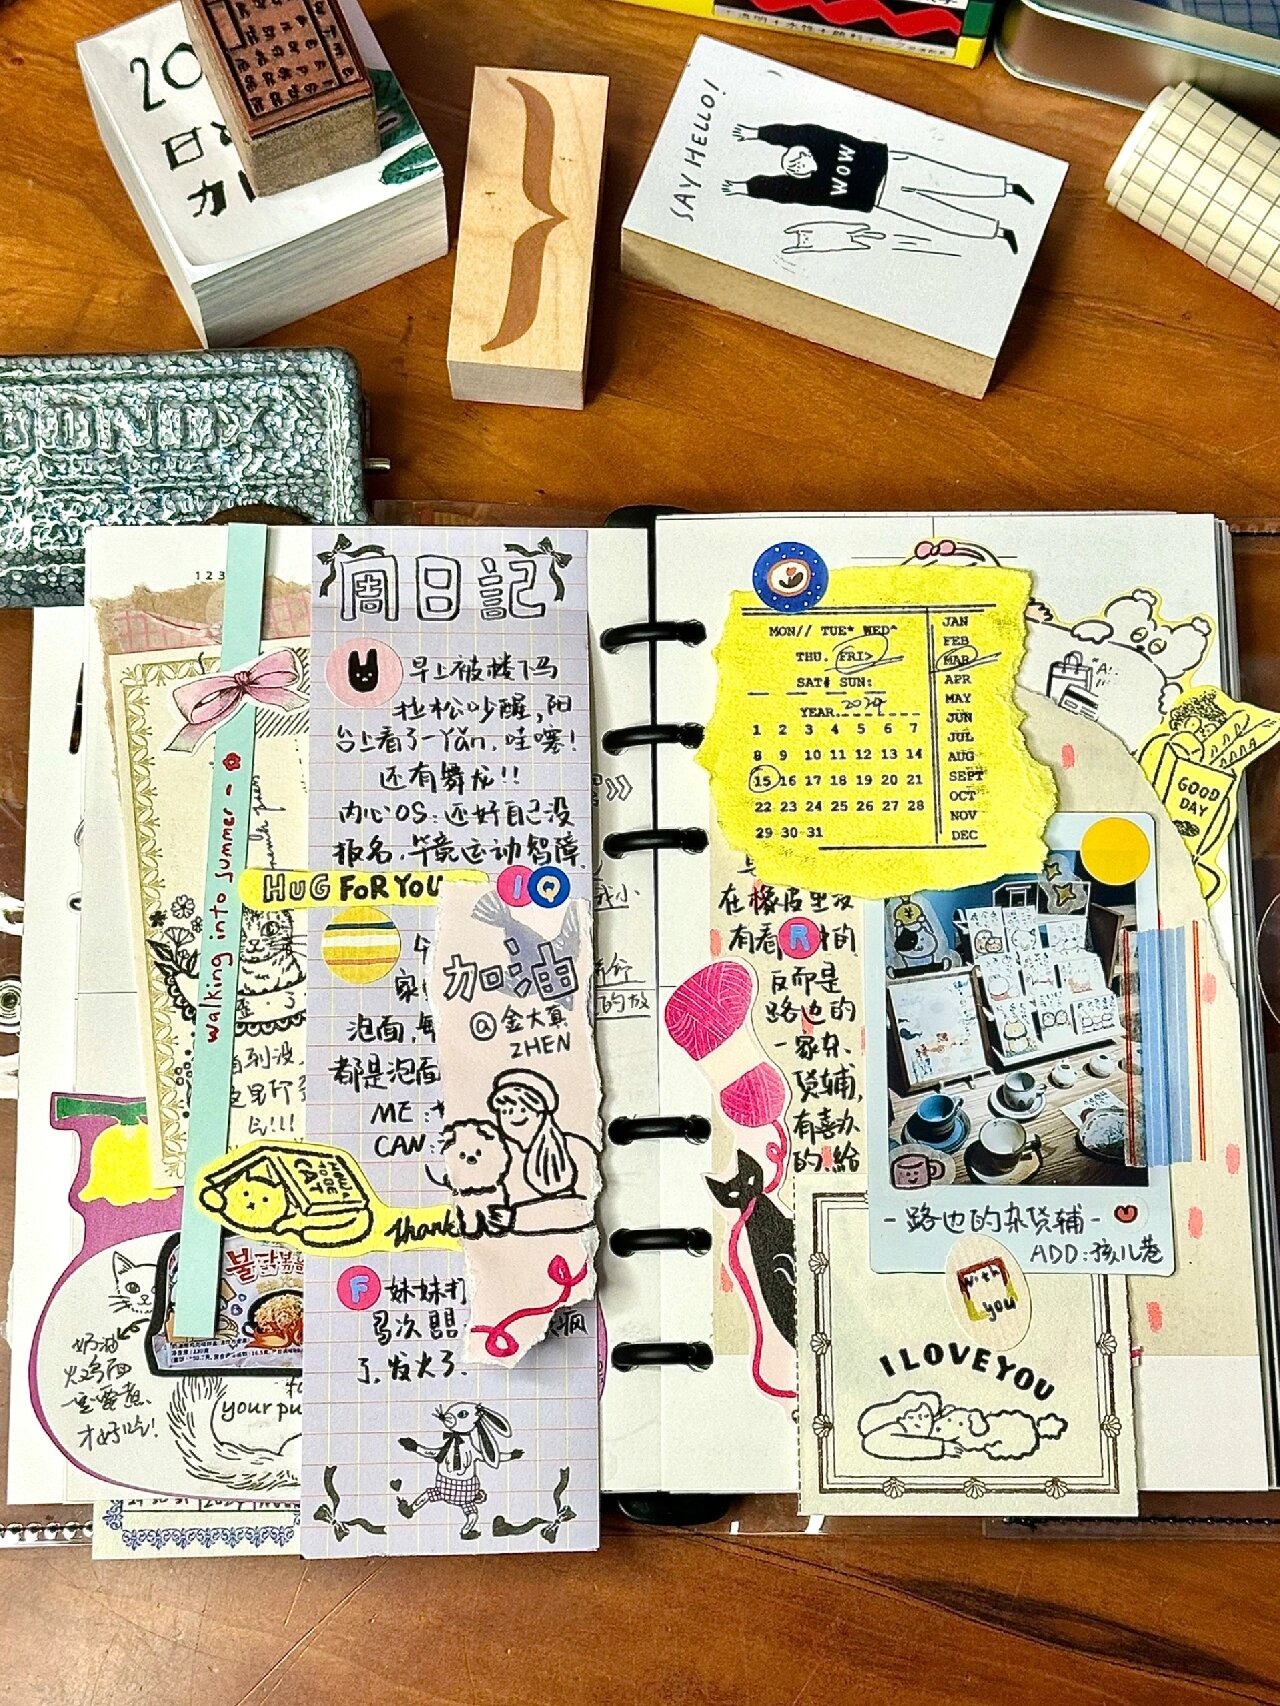 20
SAY HELLO!
WOW
123
周日記
早上被楼下马
拉松吵醒,阳
台上看了一Yǎn,哇塞!
还有舞龙!!
内心OS:还好自己没
报名,毕竟运动智障.
HUG FOR YOU
I Q
加油
@金大真
ZHEN
泡面,每
都是泡面
ME:
CAN:
HOW TO BE A CAT
Thank
F 妹妹打
了,发火了.
walking into summer -
불닭볶음
奶油
火鸡面
一定要煮
才好吃!
your pu
MON// TUE* WED^
THU. FRI>
SAT# SUN:
YEAR 2024
1 2 3 4 5 6 7
8 9 10 11 12 13 14
15 16 17 18 19 20 21
22 23 24 25 26 27 28
29 30 31
JAN
FEB
MAR
APR
MAY
JUN
JUL
AUG
SEPT
OCT
NOV
DEC
GOOD
DAY
在橡皮里没
有看 R 的
反而是
路边的
一家杂
货铺,
有喜欢
的.给
-路边的杂货铺-
ADD:孩儿巷
with
you
I LOVE YOU